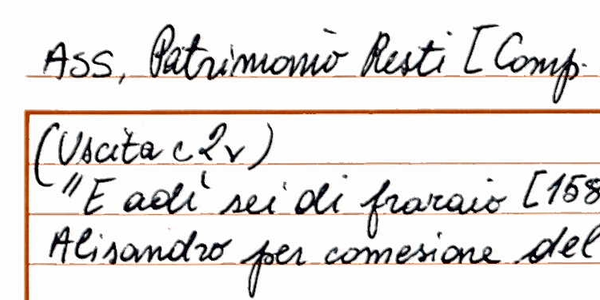 ASS, Patrimonio Resti [Comp.
(Uscita c 2v)
"E adì sei di fraraio [158
Alisandro per comesione del